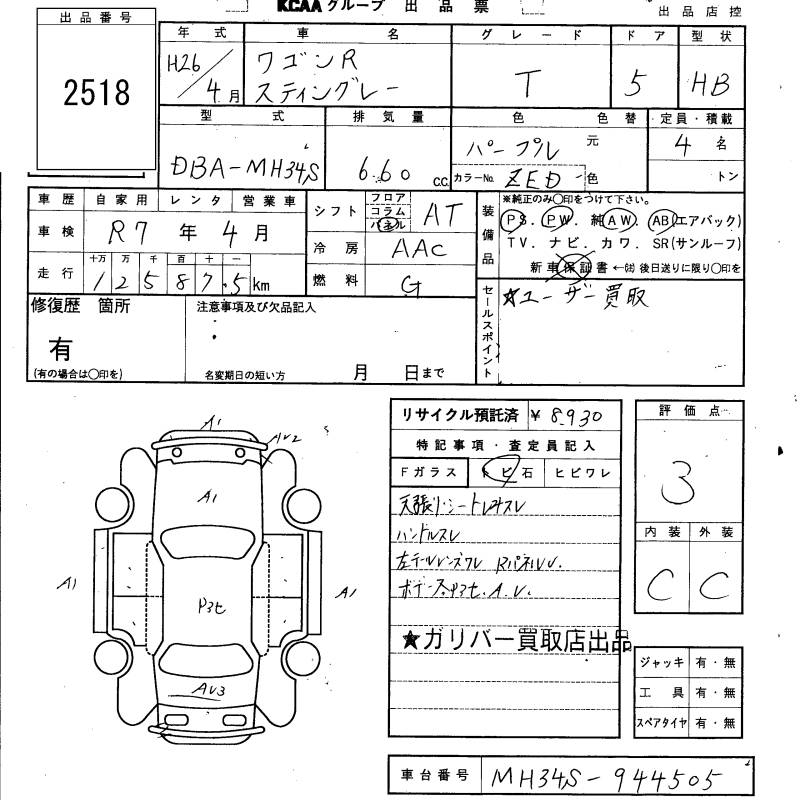 KCAAグループ 出品票
出品店控
出品番号
2518
年式 車名 グレード ドア 型状
H26/4月 ワゴンR スティングレー T 5 HB
型式 排気量 色 色替 定員・積載
DBA-MH34S 660 CC パープル 元 4名
カラーNo. ZED 色 トン
車歴 自家用 レンタ 営業車
車検 R7年4月
走行 十万 万 千 百 十 一
125875 km
シフト フロア コラム パネル AT
冷房 AAC
燃料 G
装備品
※純正のみ〇印をつけて下さい。
PS. PW. 純AW. AB(エアバック)
TV. ナビ. カワ. SR(サンルーフ)
新車保証書←㈲後日送りに限り〇印を
修復歴 箇所
有
(有の場合は〇印を)
注意事項及び欠品記入
名変期日の短い方 月 日まで
セールスポイント
☆ユーザー買取
リサイクル預託済 ¥8930
特記事項・査定員記入
Fガラス トビ石 ヒビワレ
天張り.シート
ハンドルスレ
左テールレンズワレ
★ガリバー買取店出品
評価点
3
内装 外装
C C
ジャッキ 有・無
工具 有・無
スペアタイヤ 有・無
A1
AU2
A1
A1
A1
AU3
車台番号 MH34S-944505